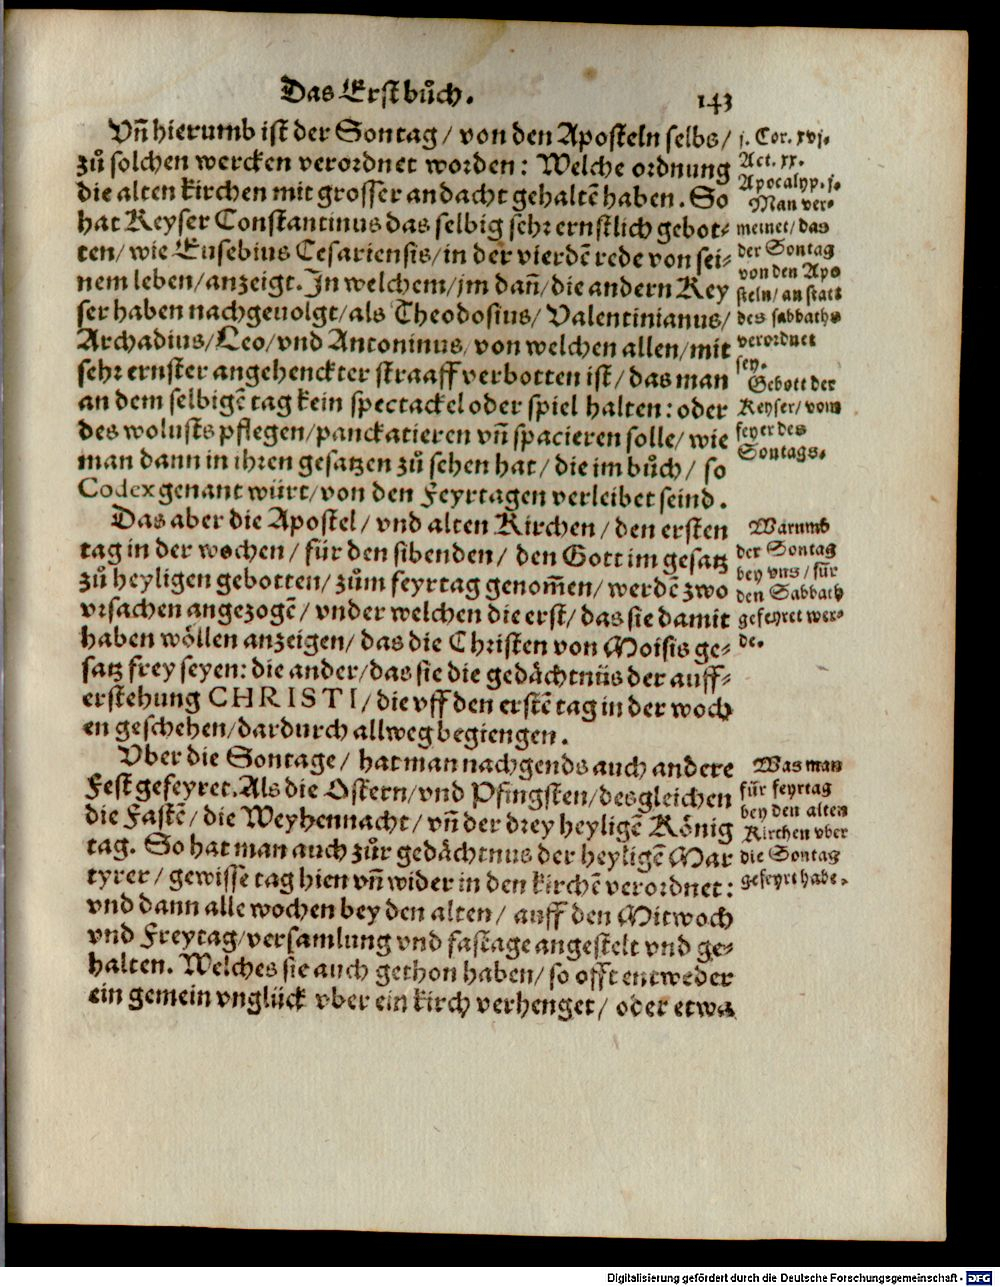 Das Erst bůch.
143
Vñ hierumb ist der Sontag/ von den Aposteln selbs/
zů solchen wercken verordnet worden: Welche ordnung
die alten kirchen mit grosser andacht gehaltē haben. So
hat Keyser Constantinus das selbig sehr ernstlich gebot⸗
ten/ wie Eusebius Cesariensis/ in der vierdē rede von sei⸗
nem leben/ anzeigt. In welchem/ jm dañ/ die andern Key
ser haben nachgeuolgt/ als Theodosius/ Valentinianus/
Archadius/ Leo/ vnd Antoninus/ von welchen allen/ mit
sehr ernster angehenckter straaff verbotten ist/ das man
an dem selbigē tag kein spectackel oder spiel halten: oder
des wolusts pflegen/ panckatieren vñ spacieren solle/ wie
man dann in ihren gesatzen zů sehen hat/ die im bůch/ so
Codex genant würt/ von den Feyrtagen verleibet seind.
Das aber die Apostel/ vnd alten Kirchen/ den ersten
tag in der wochen/ für den sibenden/ den Gott im gesatz
zů heyligen gebotten/ zům feyrtag genom̄en/ werdē zwo
vrsachen angezogē/ vnder welchen die erst/ das sie damit
haben wöllen anzeigen/ das die Christen von Moisis ge⸗
satz frey seyen: die ander/ das sie die gedächtnüs der auff⸗
erstehung CHRISTI/ die vff den erstē tag in der woch
en geschehen/ dardurch allweg begiengen.
Vber die Sontage/ hat man nachgends auch andere
Fest gefeyret. Als die Ostern/ vnd Pfingsten/ desgleichen
die Fastē/ die Weyhennacht/ vñ der drey heyligē König
tag. So hat man auch zůr gedächtnus der heyligē Mar
tyrer/ gewisse tag hien vñ wider in den kirchē verordnet:
vnd dann alle wochen bey den alten/ auff den Mitwoch
vnd Freytag/ versamlung vnd fastage angestelt vnd ge⸗
halten. Welches sie auch gethon haben/ so offt entweder
ein gemein vnglück vber ein kirch verhenget/ oder etwa
j. Cor. xvj.
Act. xx.
Apocalyp. j.
Man ver⸗
meinet/ das
der Sontag
von den Apo
steln/ an statt
des sabbaths
verordnet
sey.
Gebott der
Keyser/ vom
feyer des
Sontags.
Warumb
der Sontag
bey vns/ für
den Sabbath
gefeyret wer⸗
de.
Was man
für feyrtag
bey den alten
Kirchen vber
die Sontag
gefeyrt habe.
Digitalisierung gefördert durch die Deutsche Forschungsgemeinschaft - DFG